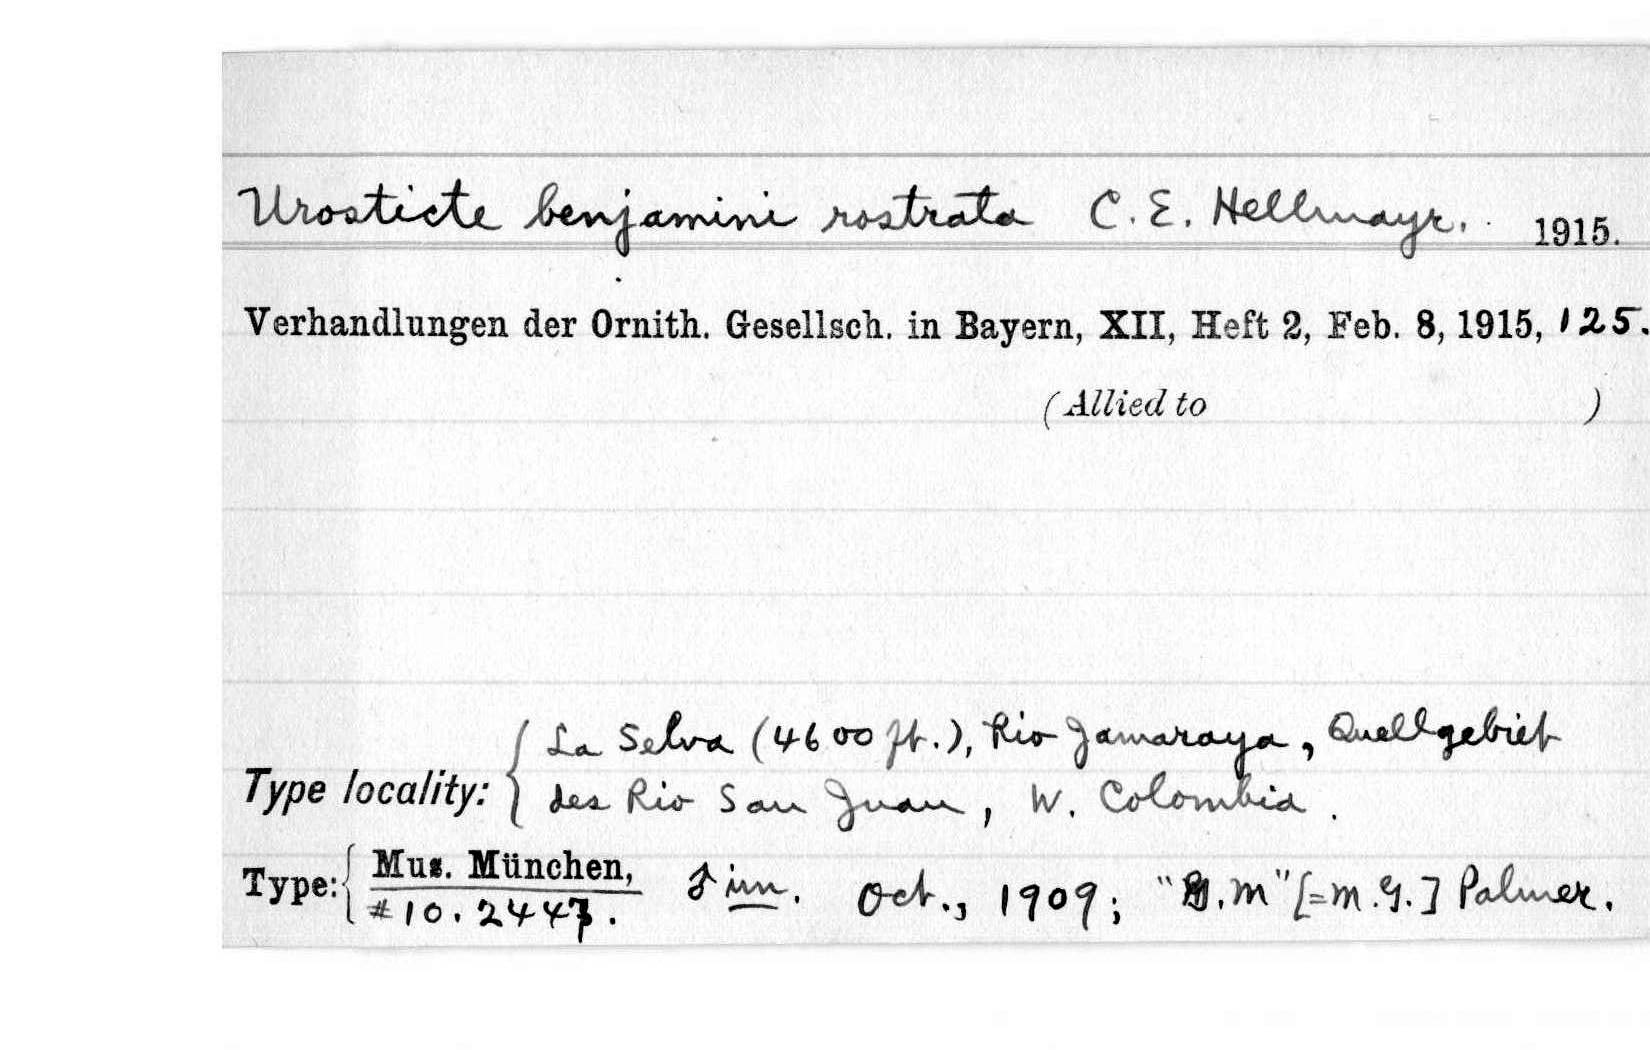 Urosticte benjamini rostrata C. E. Hellmayr. 1915.
Verhandlungen der Ornith. Gesellsch. in Bayern, XII, Heft 2, Feb. 8, 1915, 125.
(Allied to )
La Selva (4600 ft.), Rio Jamaraya, Quellgebiet
Type locality: des Rio San Juan, W. Colombia.
Type: Mus. München, ♂ imm. Oct., 1909; "G. M" [=M. G.] Palmer.
#10.2447.